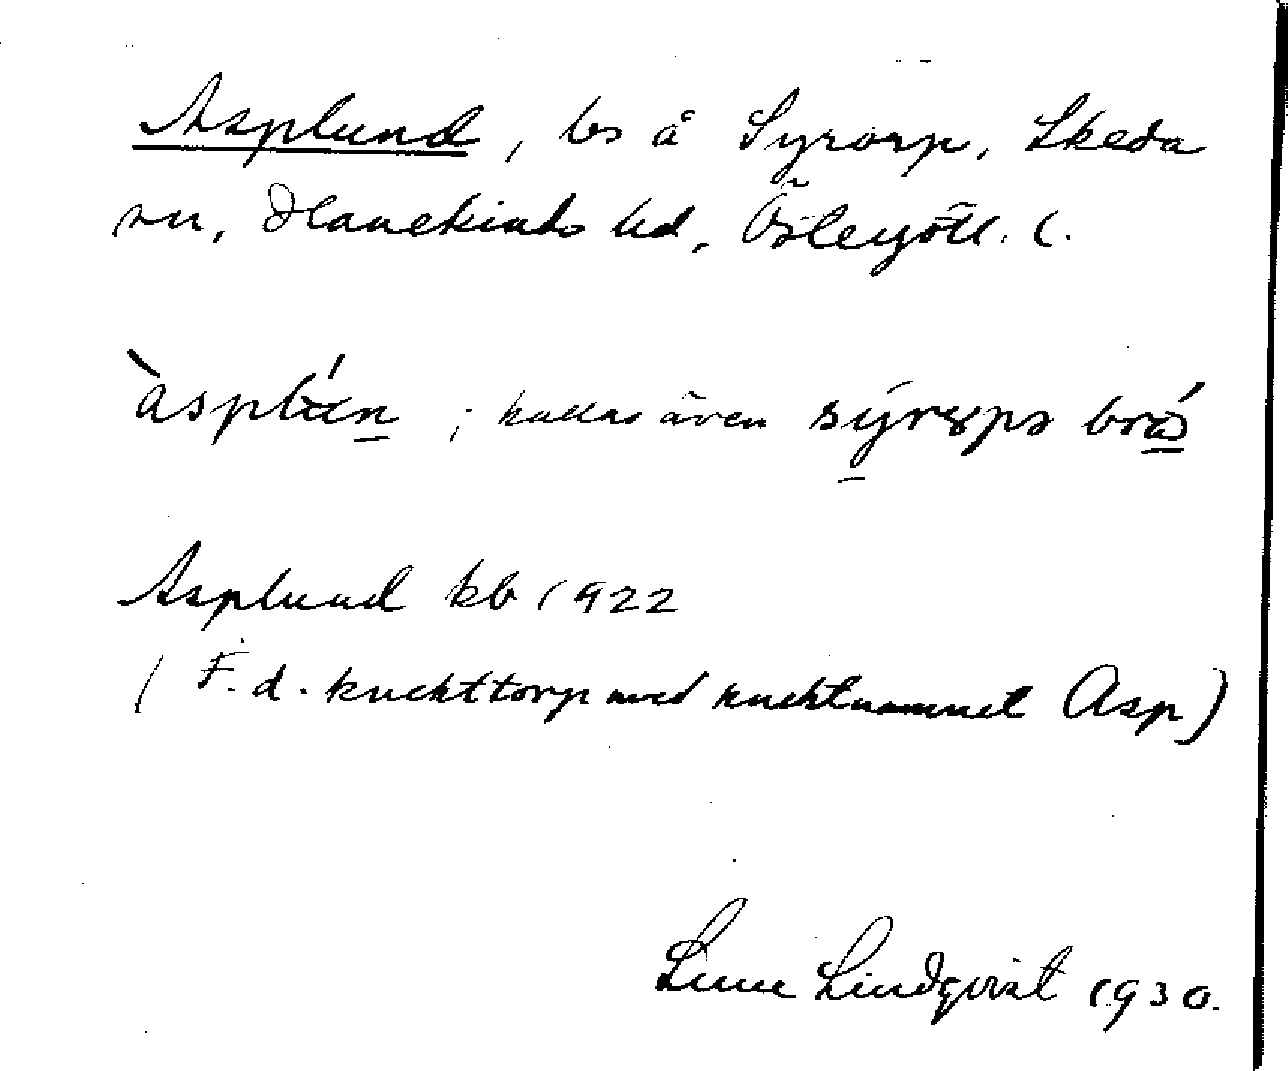 Asplund, bs å Syrorp, Skeda
sn, Hanekinds hd, Östergötl. l.
àsplún ; kallas även sýrorps brå
Asplund kb 1922
(F. d. knekttorp med knektnamnet Asp)
Sune Lindqvist 1930.